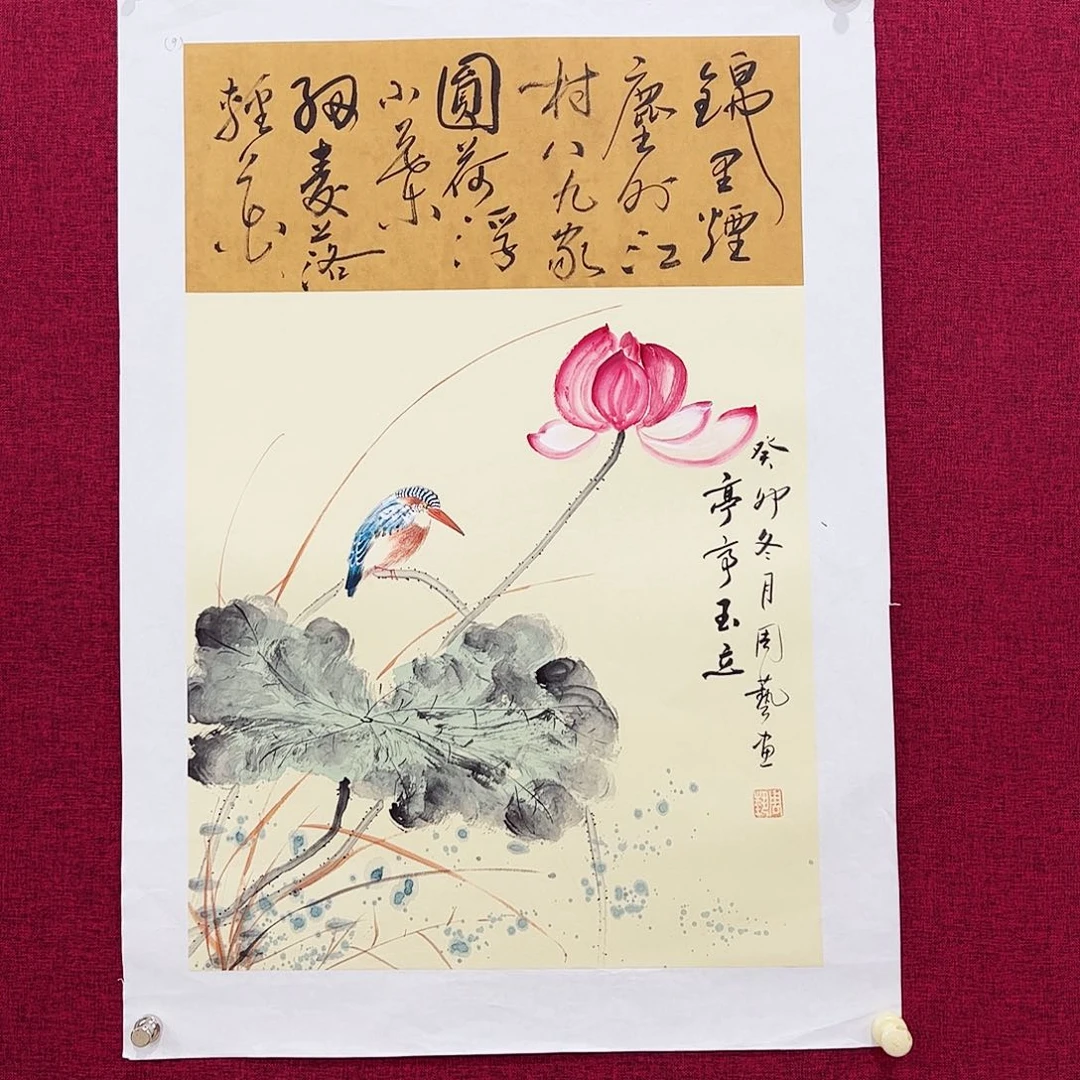 (9)
錦里煙
塵外江
村八九家
圓荷浮
小葉
細麥落
輕花
癸卯冬月周藝画
亭亭玉立